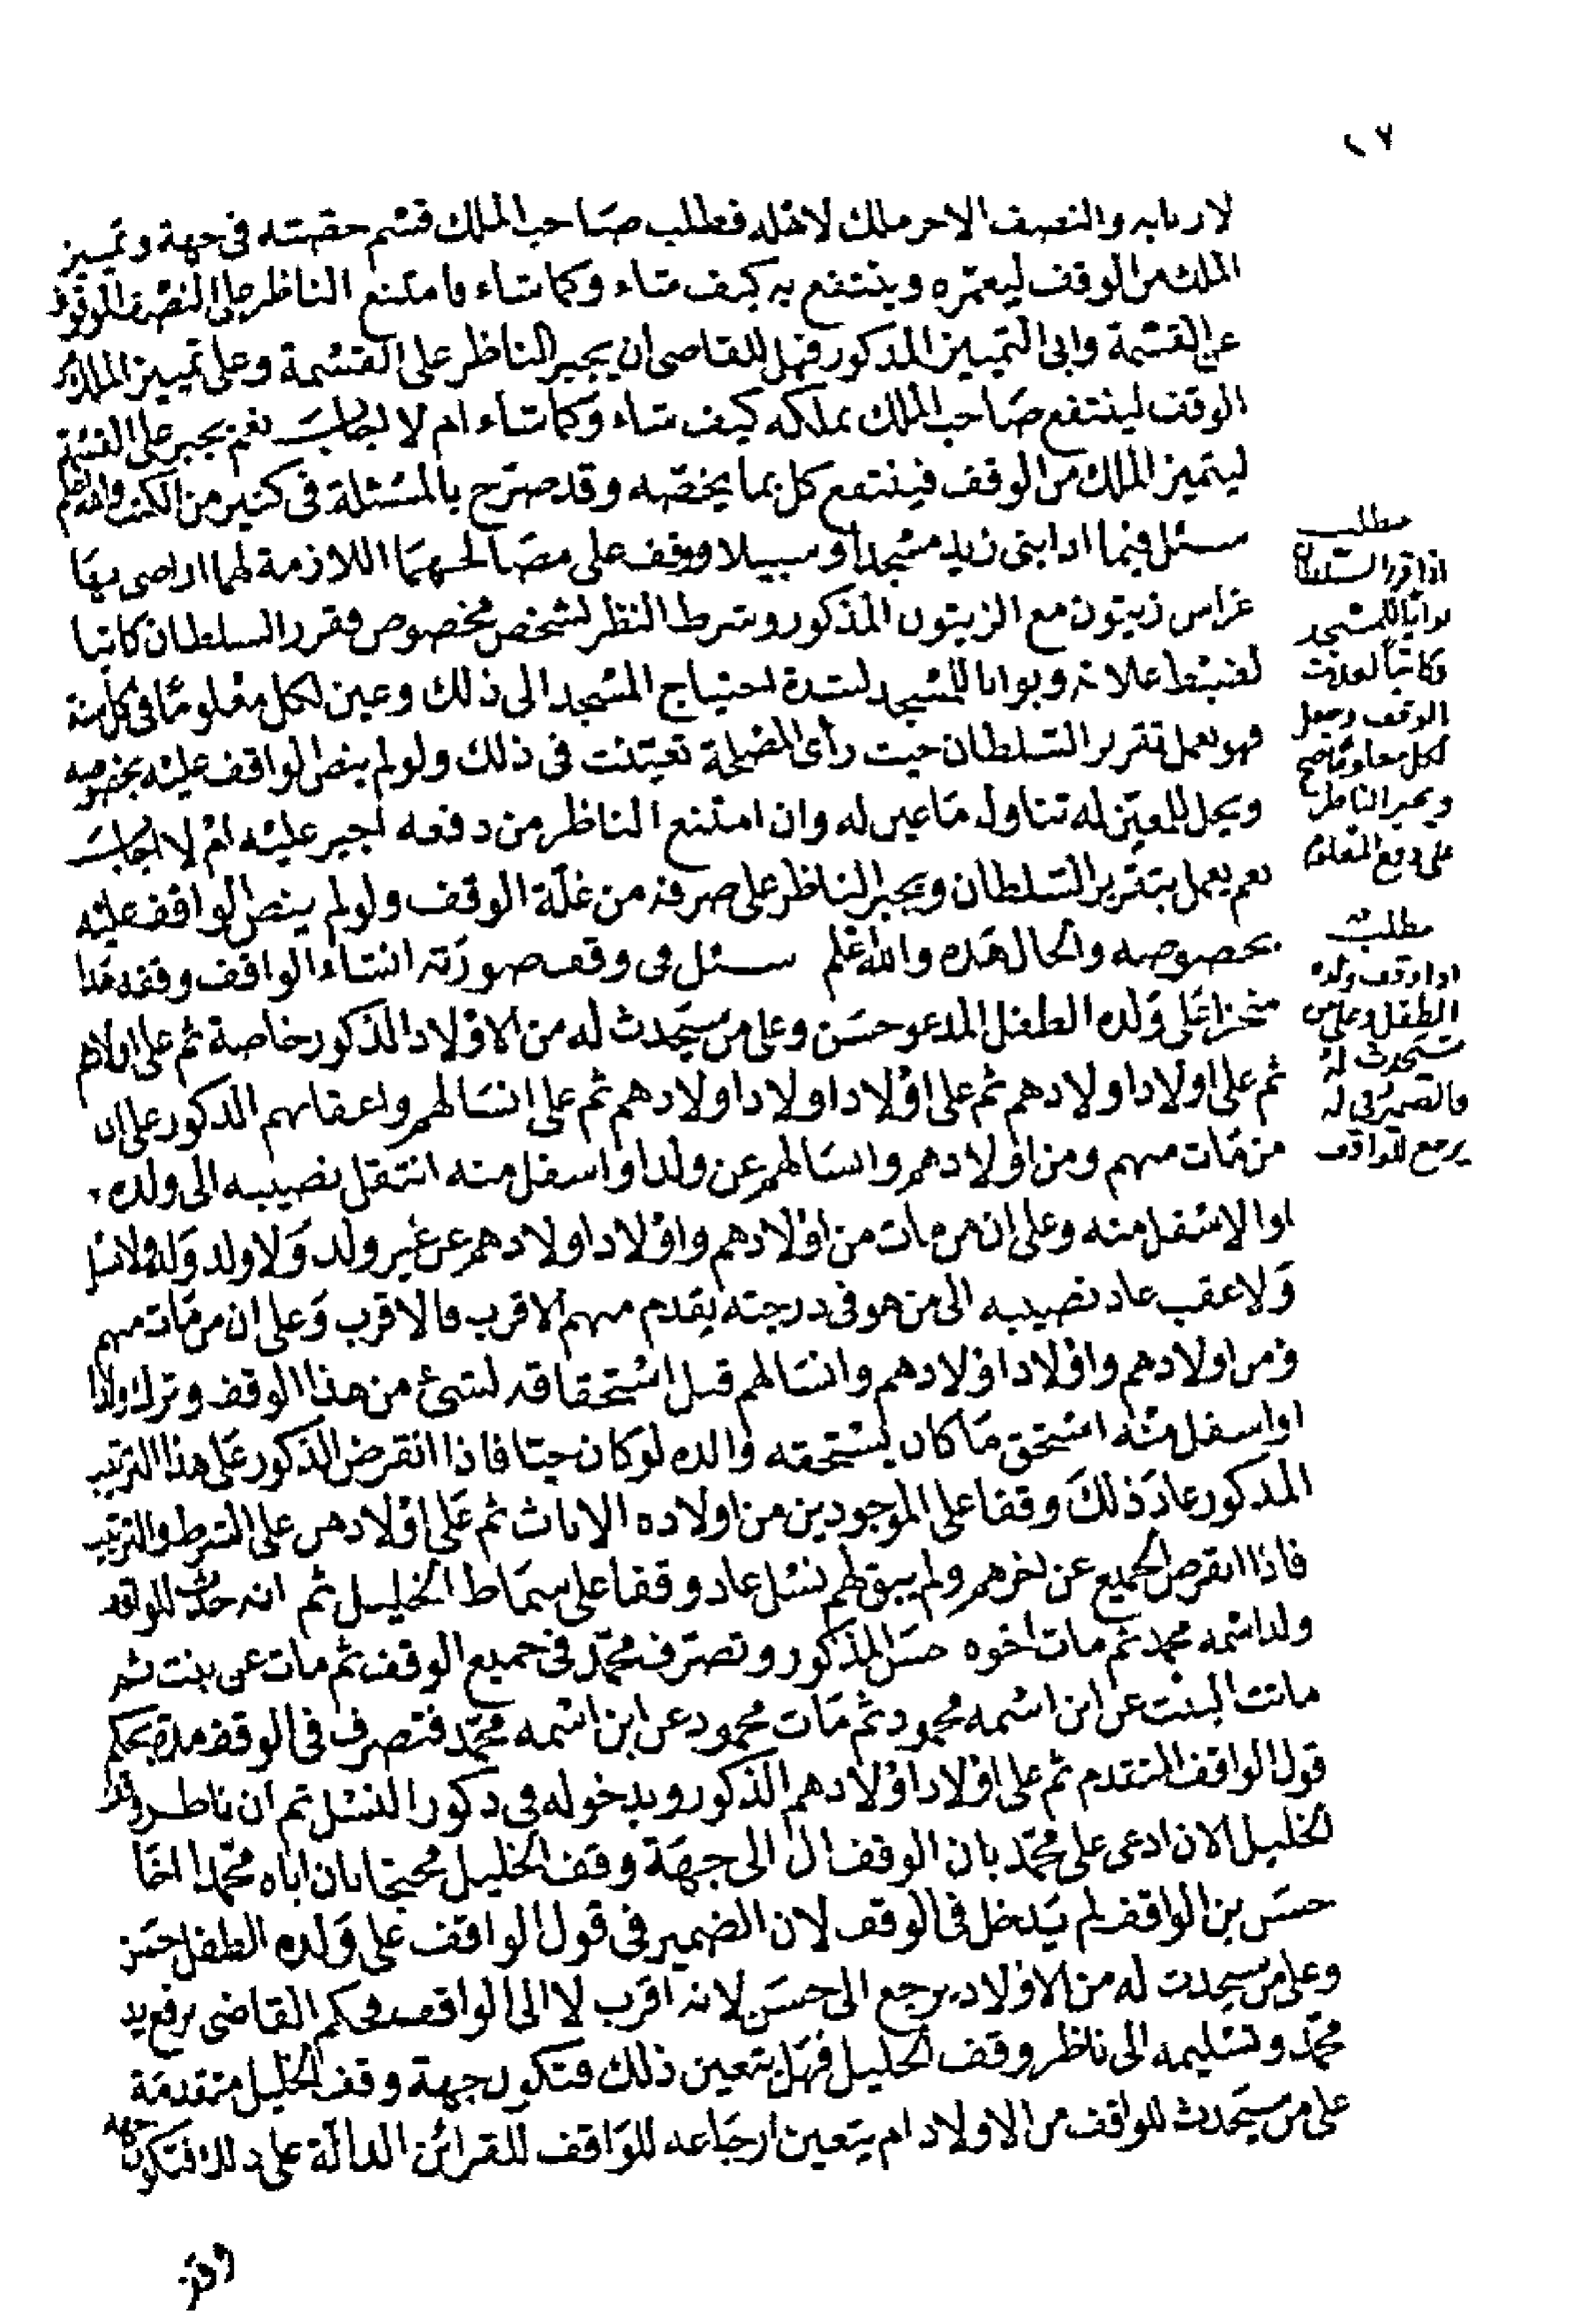 ٦٧
لاربابه والنصف الاخر ملك لاهله فطلب صاحب الملك قسم حصته في جهة وتمييز
الملك من الوقف ليعمره وينتفع به كيف شاء وكما شاء فامتنع الناظر على النصف الموقوف
عن القسمة وابى التمييز المذكور فهل للقاضي ان يجبر الناظر على القسمة وعلى تمييز الملك من
الوقف لينتفع صاحب الملك بملكه كيف شاء وكما شاء ام لا اجاب نعم يجبر على القسمة
ليتميز الملك من الوقف فينتفع كل بما يخصه وقد صرح بالمسئلة في كثير من الكتب والله اعلم
سئل فيما اذا بنى زيد مسجدا وسبيلا ووقف على مصالحهما اللازمة لهما اراضي بها
غراس زيتون مع الزيتون المذكور وشرط النظر لشخص مخصوص فقرر السلطان كاتبا
لضبط غلاته وبوابا للمسجد لشدة احتياج المسجد الى ذلك وعين لكل معلوما في كل سنة
فهو يعمل تقرير السلطان حيث رأى المصلحة تعينت في ذلك ولو لم ينص الواقف عليه بخصوصه
ويحل للمعين له تناول ما عين له وان امتنع الناظر من دفعه اجبر عليه ام لا اجاب
نعم يعمل بتقرير السلطان ويجبر الناظر على صرفه من غلة الوقف ولو لم ينص الواقف عليه
بخصوصه والحال هذه والله اعلم سئل في وقف صورته انشاء الواقف وقفه هذا
منجزا على ولده الطفل المدعو حسن وعلى من سيحدث له من الاولاد الذكور خاصة ثم على اولادهم
ثم على اولاد اولادهم ثم على اولاد اولاد اولادهم ثم على انسالهم واعقابهم الذكور على ان
من مات منهم ومن اولادهم وانسالهم عن ولد او اسفل منه انتقل نصيبه الى ولده
او الاسفل منه وعلى ان من مات من اولادهم واولاد اولادهم عن غير ولد ولا ولد ولد ولا نسل
ولا عقب عاد نصيبه الى من هو في درجته يقدم منهم الاقرب فالاقرب وعلى ان من مات منهم
ومن اولادهم واولاد اولادهم وانسالهم قبل استحقاقه لشئ من هذا الوقف وترك ولدا
او اسفل منه استحق ما كان يستحقه والده لو كان حيا فاذا انقرض الذكور على هذا الترتيب
المذكور عاد ذلك وقفا على الموجودين من اولاده الاناث ثم على اولادهن على الشرط والترتيب
فاذا انقرض الجميع عن اخرهم ولم يبق لهم نسل عاد وقفا على سماط الخليل ثم انه حدث للواقف
ولد اسمه محمد ثم مات اخوه حسن المذكور وتصرف محمد في جميع الوقف ثم مات عن بنت ثم
ماتت البنت عن ابن اسمه محمود ثم مات محمود عن ابن اسمه محمد فتصرف في الوقف مدة بحكم
قول الواقف المتقدم ثم على اولاد اولادهم الذكور وبدخوله في ذكور النسل ثم ان ناظر وقف
الخليل الان ادعى على محمد بان الوقف ال الى جهة وقف الخليل محتجا بان اباه محمدا اخا
حسن بن الواقف لم يدخل في الوقف لان الضمير في قول الواقف على ولده الطفل حسن
وعلى من سيحدث له من الاولاد يرجع الى حسن لانه اقرب لا الى الواقف فحكم القاضي برفع يد
محمد وتسليمه الى ناظر وقف الخليل فهل يتعين ذلك فتكون جهة وقف الخليل متقدمة
على من سيحدث للواقف من الاولاد ام يتعين ارجاعه للواقف للقرائن الدالة على ذلك فتكون جهة
مطلب
اذا قرر السلطان
بوابا للمسجد
وكاتبا لغلات
الوقف وجعل
لكل معلوما صح
ويجبر الناظر
على دفع المعلوم
مطلب
اذا وقف ولده
الطفل وعلى من
سيحدث له
فالضمير في له
يرجع للواقف